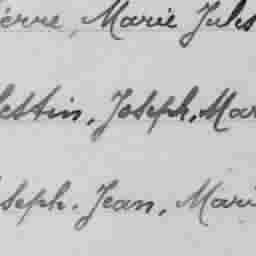 ierre, Marie Jules
lestin, Joseph, Mar
seph. Jean, Mari